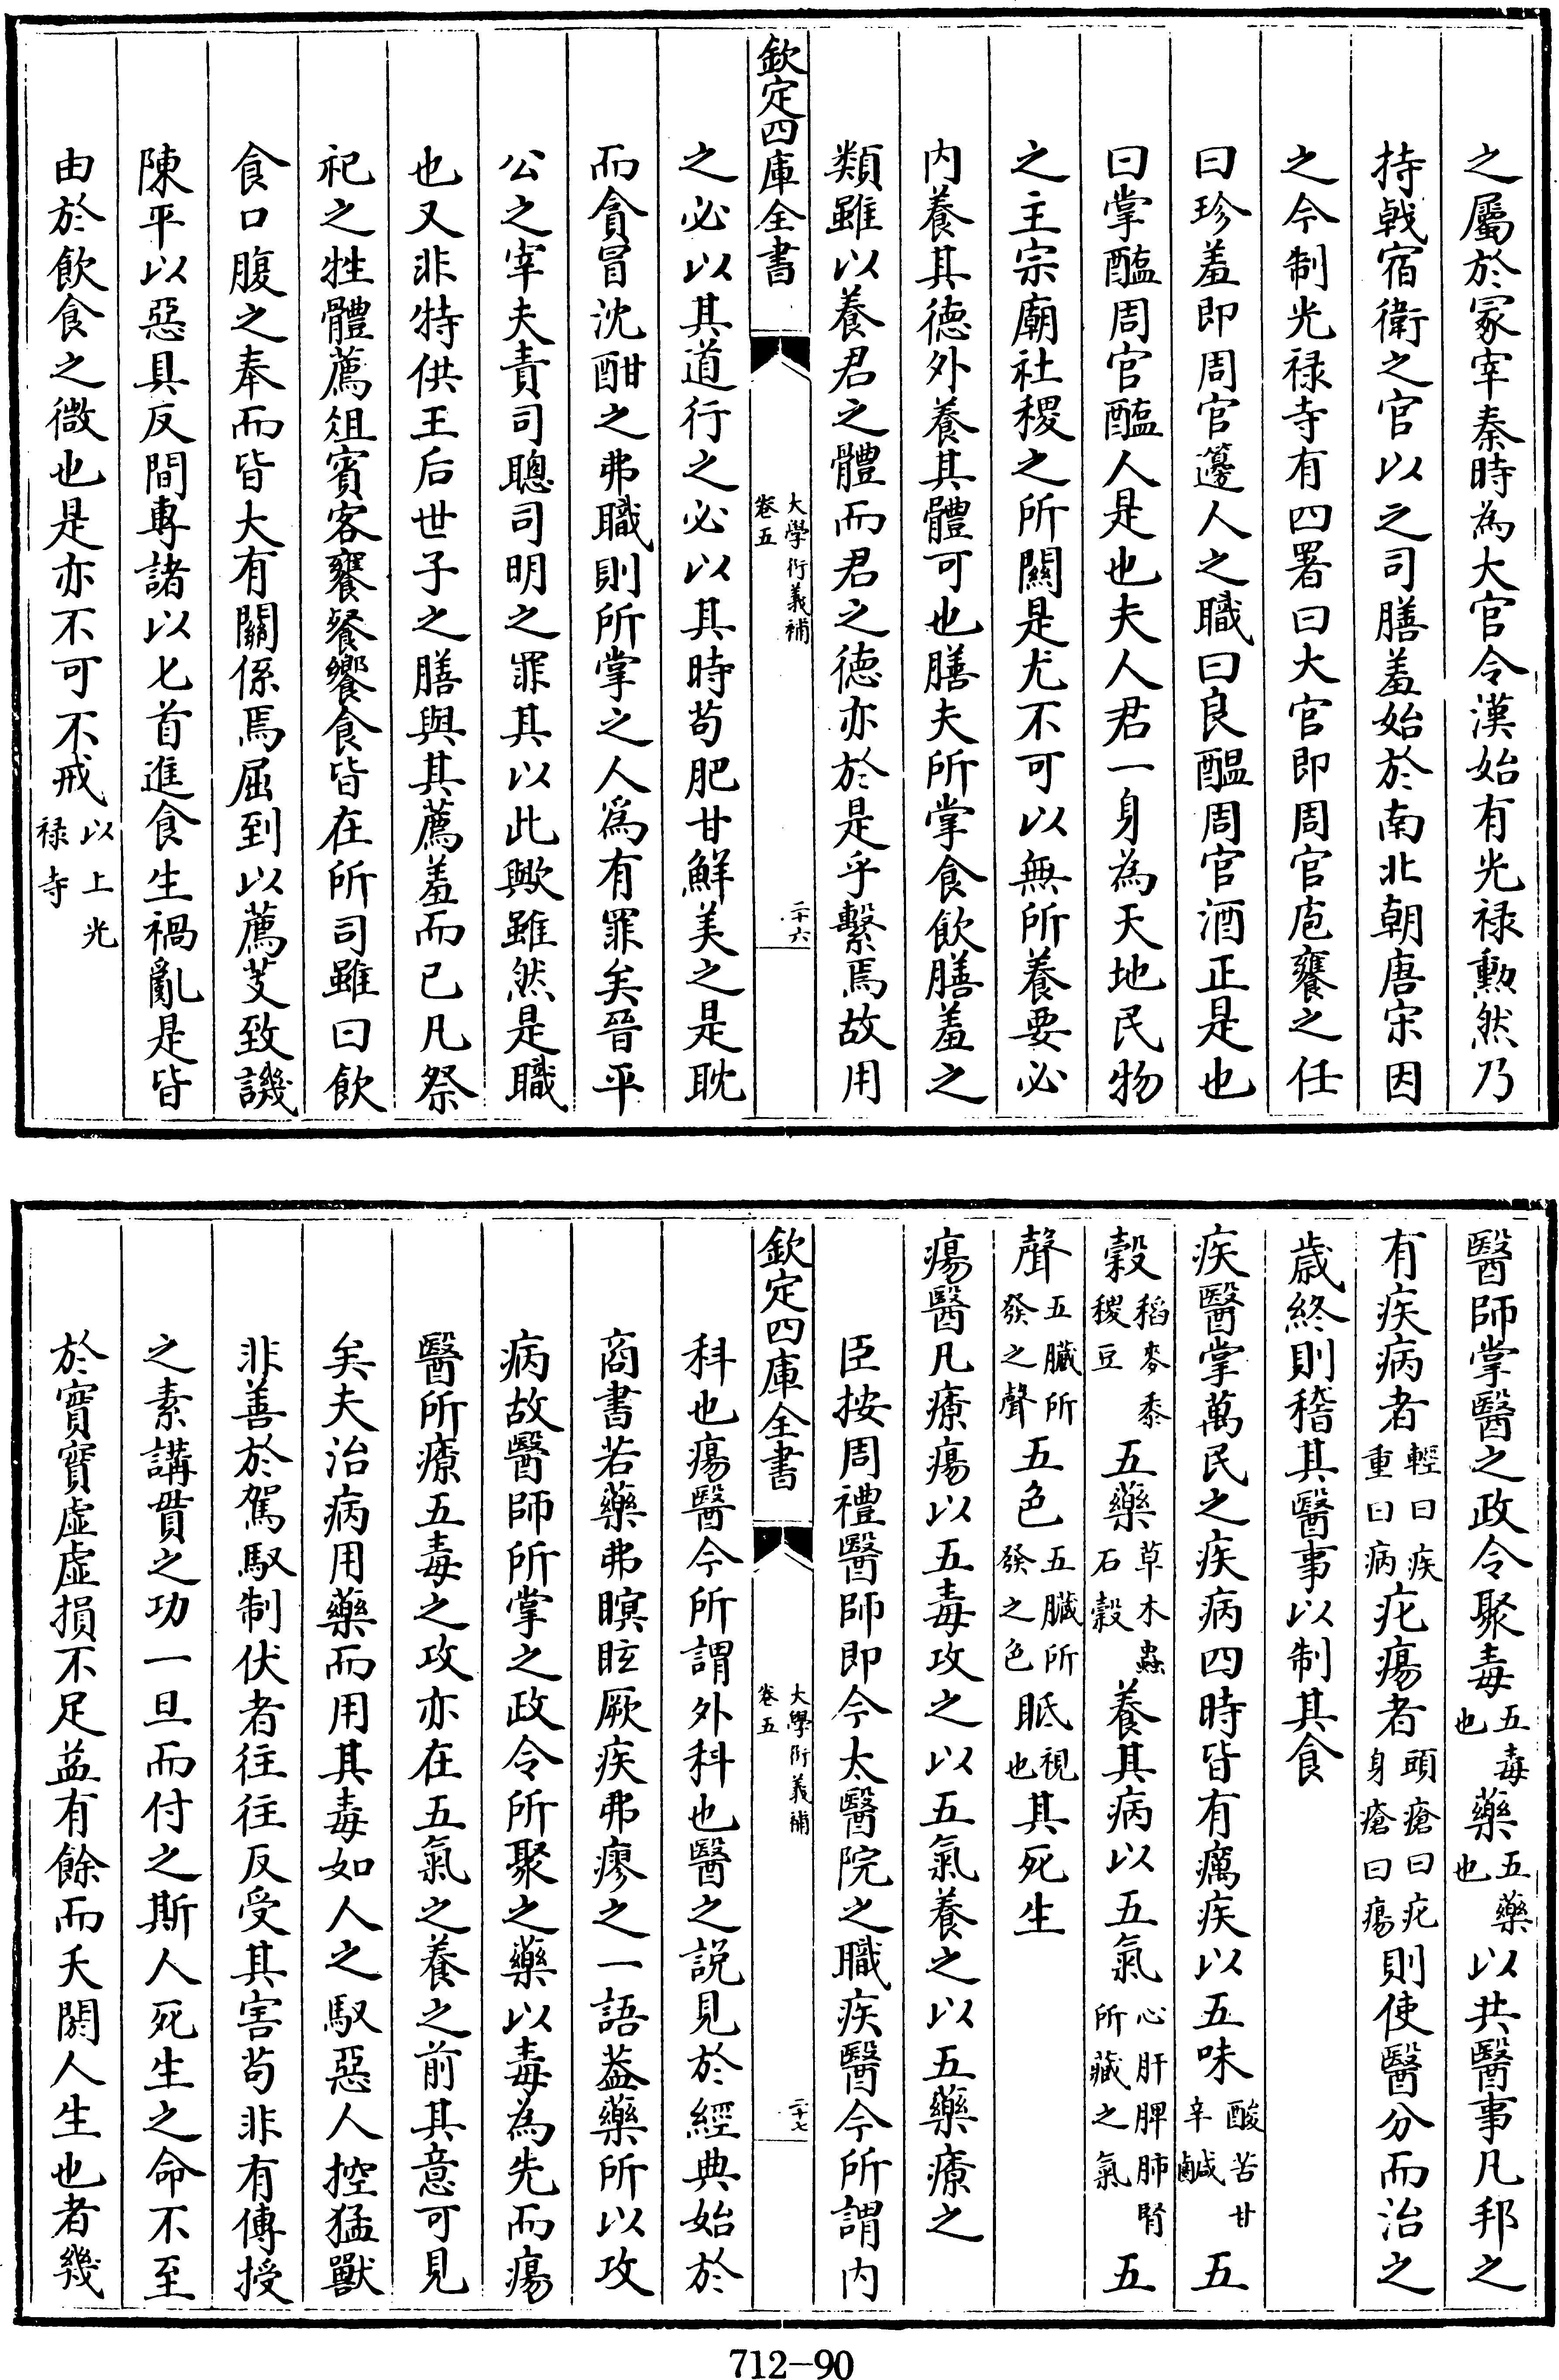 之屬於冢宰秦時為大官令漢始有光禄勲然乃
持戟宿衛之官以之司膳羞始於南北朝唐宋因
之今制光禄寺有四署曰大官即周官庖饔之任
曰珍羞即周官籩人之職曰良醖周官酒正是也
曰掌醢周官醢人是也夫人君一身為天地民物
之主宗廟社稷之所關是尤不可以無所養要必
内養其德外養其體可也膳夫所掌食飲膳羞之
類雖以養君之體而君之德亦於是乎繫焉故用
欽定四庫全書
大學衍義補
卷五
二十六
之必以其道行之必以其時苟肥甘鮮美之是耽
而貪冒沈酣之弗職則所掌之人爲有罪矣晉平
公之宰夫責司聰司明之罪其以此歟雖然是職
也又非特供王后世子之膳與其薦羞而已凡祭
祀之牲體薦俎賓客饔餐饗食皆在所司雖曰飲
食口腹之奉而皆大有關係焉屈到以薦芰致譏
陳平以惡具反間專諸以匕首進食生禍亂是皆
由於飲食之微也是亦不可不戒以上光禄寺
醫師掌醫之政令聚毒五毒也藥五藥也以共醫事凡邦之
有疾病者輕曰疾重曰病疕瘍者頭瘡曰疕身瘡曰瘍則使醫分而治之
歲終則稽其醫事以制其食
疾醫掌萬民之疾病四時皆有癘疾以五味酸苦甘辛鹹五
穀稻麥黍稷豆五藥草木蟲石穀養其病以五氣心肝脾肺腎所藏之氣五
聲五臟所發之聲五色五臟所發之色眡視也其死生
瘍醫凡療瘍以五毒攻之以五氣養之以五藥療之
臣按周禮醫師即今太醫院之職疾醫今所謂内
欽定四庫全書
大學衍義補
卷五
二十七
科也瘍醫今所謂外科也醫之說見於經典始於
商書若藥弗瞑眩厥疾弗瘳之一語葢藥所以攻
病故醫師所掌之政令所聚之藥以毒為先而瘍
醫所療五毒之攻亦在五氣之養之前其意可見
矣夫治病用藥而用其毒如人之馭惡人控猛獸
非善於駕馭制伏者往往反受其害苟非有傳授
之素講貫之功一旦而付之斯人死生之命不至
於實實虛虛損不足益有餘而夭閼人生也者幾
712-90